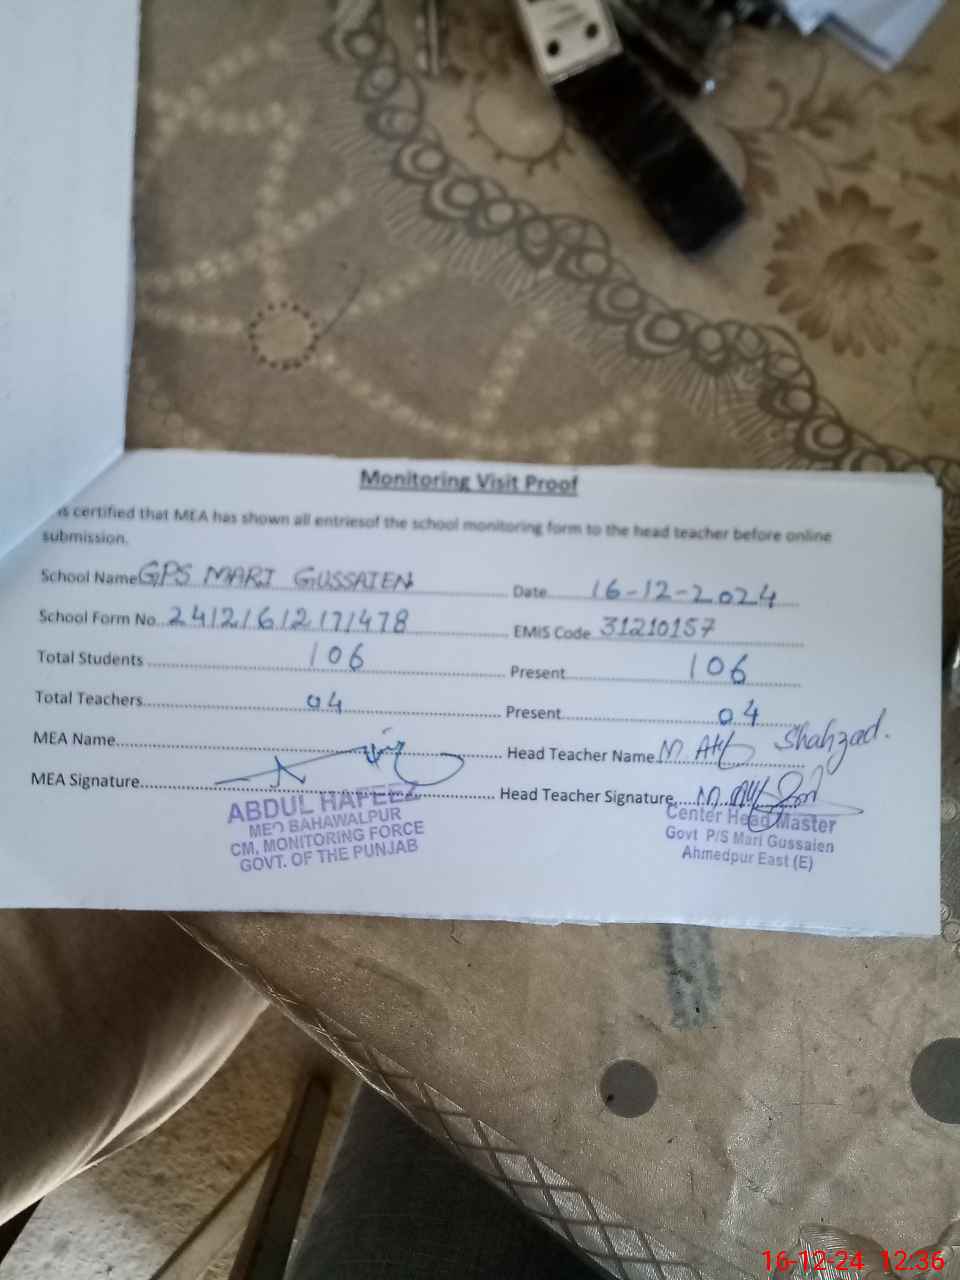 Monitoring Visit Proof
is certified that MEA has shown all entriesof the school monitoring form to the head teacher before online
submission.
School Name GPS MARI GUSSAIEN Date 16-12-2024
School Form No. 24121612171478 EMIS Code 31210157
Total Students 106 Present 106
Total Teachers 04 Present 04
MEA Name Head Teacher Name M. Shahzad.
MEA Signature Head Teacher Signature M.
ABDUL HAFEEZ
MEO BAHAWALPUR
CM, MONITORING FORCE
GOVT. OF THE PUNJAB
Center Head Master
Govt P/S Mari Gussaien
Ahmedpur East (E)
16-12-24 12:36